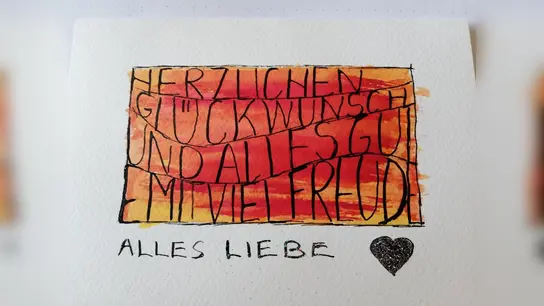 HERZLICHEN
GLÜCKWUNSCH
UND ALLES GUT
E MIT VIEL FREUDE
ALLES LIEBE